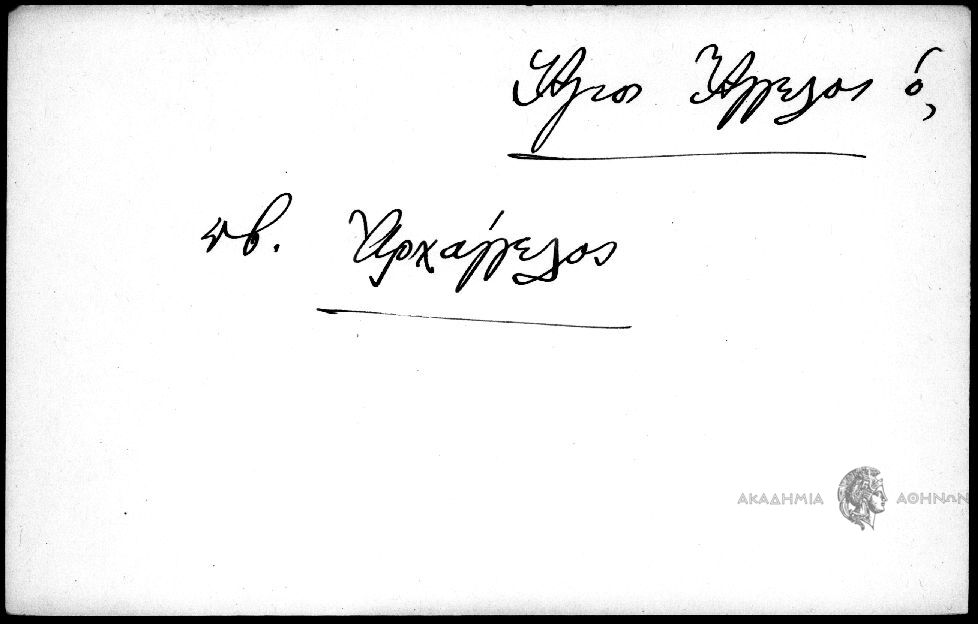 Ἅγιος Ἄγγελος ὁ,
πβ. Ἀρχάγγελος
ΑΚΑΔΗΜΙΑ ΑΘΗΝΩΝ